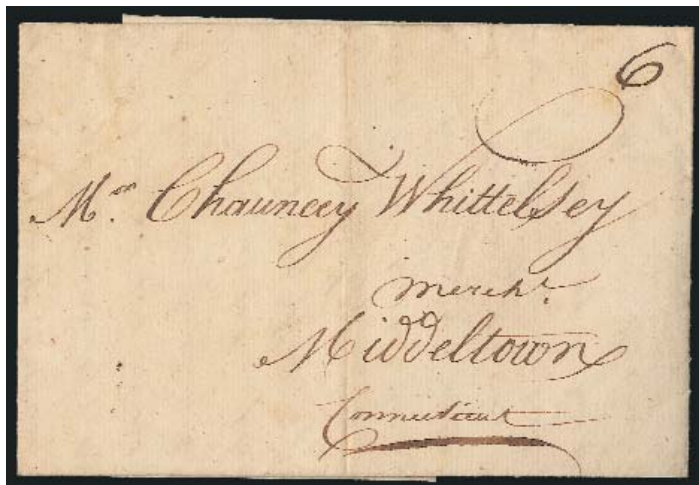 6
Mr. Chauncey Whittelsey
Mercht.
Middeltown
Connecticut